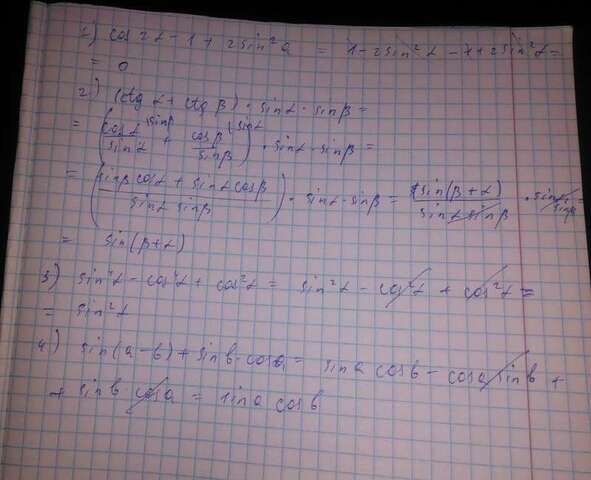 1) cos 2α - 1 + 2sin²α = 1 - 2sin²α - 1 + 2sin²α =
= 0
2) (ctg α + ctg β) · sinα · sinβ =
= (cosα/sinα + cosβ/sinβ) · sinα · sinβ =
= (sinβ cosα + sinα cosβ / sinα sinβ) · sinα · sinβ = sin(β+α) / sinα sinβ · sinα · sinβ =
= sin(β+α)
3) sin⁴α - cos⁴α + cos²α = sin²α - cos²α + cos²α =
= sin²α
4) sin(a-b) + sin b · cos a = sin a cos b - cos a sin b +
+ sin b cos a = sin a cos b